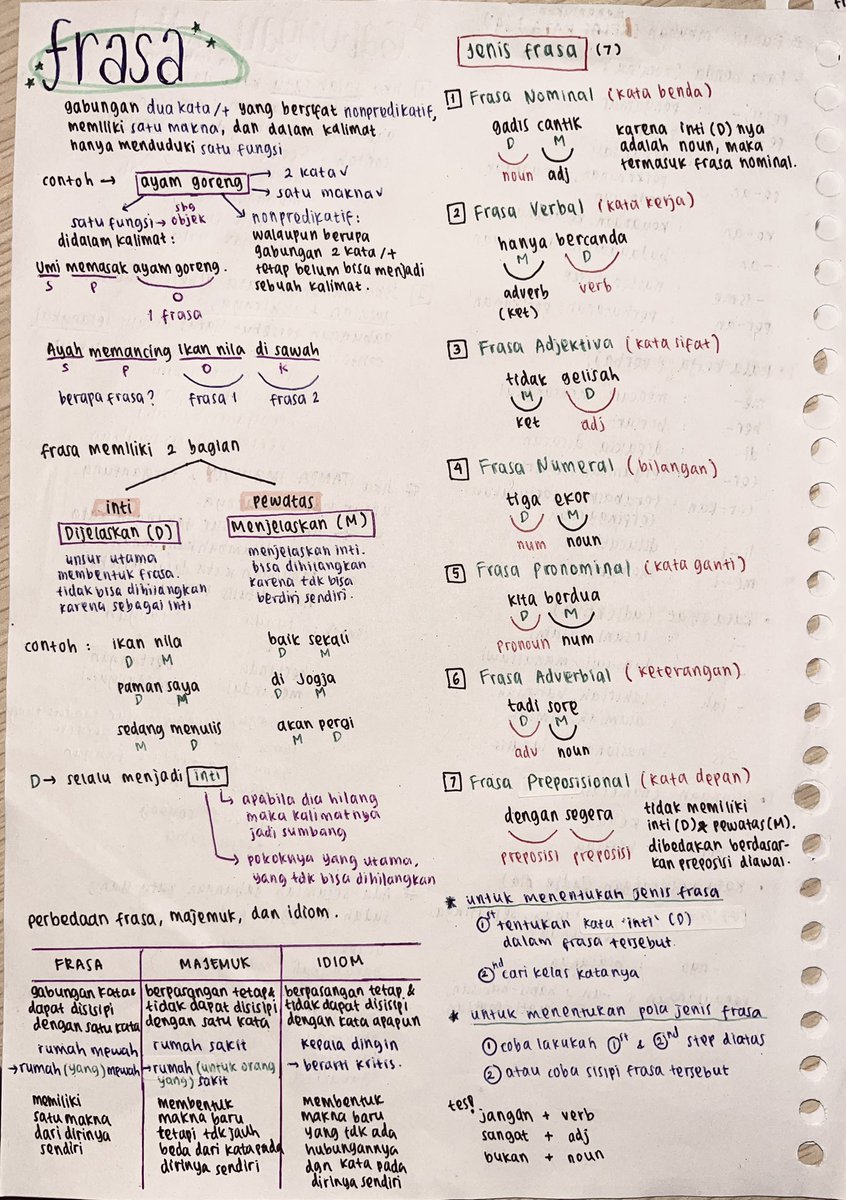 frasa
gabungan dua kata/+ yang bersifat nonpredikatif,
memiliki satu makna, dan dalam kalimat
hanya menduduki satu fungsi
contoh → ayam goreng
→ 2 kata ✓
→ satu makna ✓
satu fungsi → sbg objek
didalam kalimat :
nonpredikatif:
walaupun berupa
gabungan 2 kata/+
tetap belum bisa menjadi
sebuah kalimat.
Umi memasak ayam goreng.
S P O
1 frasa
Ayah memancing ikan nila di sawah
S P O K
berapa frasa? frasa 1 frasa 2
frasa memiliki 2 bagian
inti
Dijelaskan (D)
unsur utama
membentuk frasa.
tidak bisa dihilangkan
karena sebagai inti
pewatas
Menjelaskan (M)
menjelaskan inti.
bisa dihilangkan
karena tdk bisa
berdiri sendiri.
contoh : ikan nila baik sekali
D M D M
paman saya di Jogja
D M D M
sedang menulis akan pergi
M D M D
D → selalu menjadi inti
↳ apabila dia hilang
maka kalimatnya
jadi sumbang
↳ pokoknya yang utama,
yang tdk bisa dihilangkan
perbedaan frasa, majemuk, dan idiom.
FRASA
gabungan kata &
dapat disisipi
dengan satu kata
rumah mewah
→ rumah (yang) mewah
memiliki
satu makna
dari dirinya
sendiri
MAJEMUK
berpasangan tetap &
tidak dapat disisipi
dengan satu kata
rumah sakit
→ rumah (untuk orang
yang) sakit
membentuk
makna baru
tetapi tdk jauh
beda dari kata pada
dirinya sendiri
IDIOM
berpasangan tetap &
tidak dapat disisipi
dengan kata apapun
kepala dingin
→ berarti kritis.
membentuk
makna baru
yang tdk ada
hubungannya
dgn kata pada
dirinya sendiri
Jenis frasa (7)
1 Frasa Nominal (kata benda)
gadis cantik
D M
noun adj
karena inti (D) nya
adalah noun, maka
termasuk frasa nominal.
2 Frasa Verbal (kata kerja)
hanya bercanda
M D
adverb verb
(ket)
3 Frasa Adjektiva (kata sifat)
tidak gelisah
M D
ket adj
4 Frasa Numeral (bilangan)
tiga ekor
D M
num noun
5 Frasa Pronominal (kata ganti)
kita berdua
D M
pronoun num
6 Frasa Adverbial (keterangan)
tadi sore
D M
adv noun
7 Frasa Preposisional (kata depan)
dengan segera
preposisi preposisi
tidak memiliki
inti (D) & pewatas (M).
dibedakan berdasar-
kan preposisi diawal.
* untuk menentukan jenis frasa
1st tentukan kata 'inti' (D)
dalam frasa tersebut.
2nd cari kelas katanya
* untuk menentukan pola jenis frasa
1 coba lakukan 1st & 2nd step diatas
2 atau coba sisipi frasa tersebut
tes!
jangan + verb
sangat + adj
bukan + noun